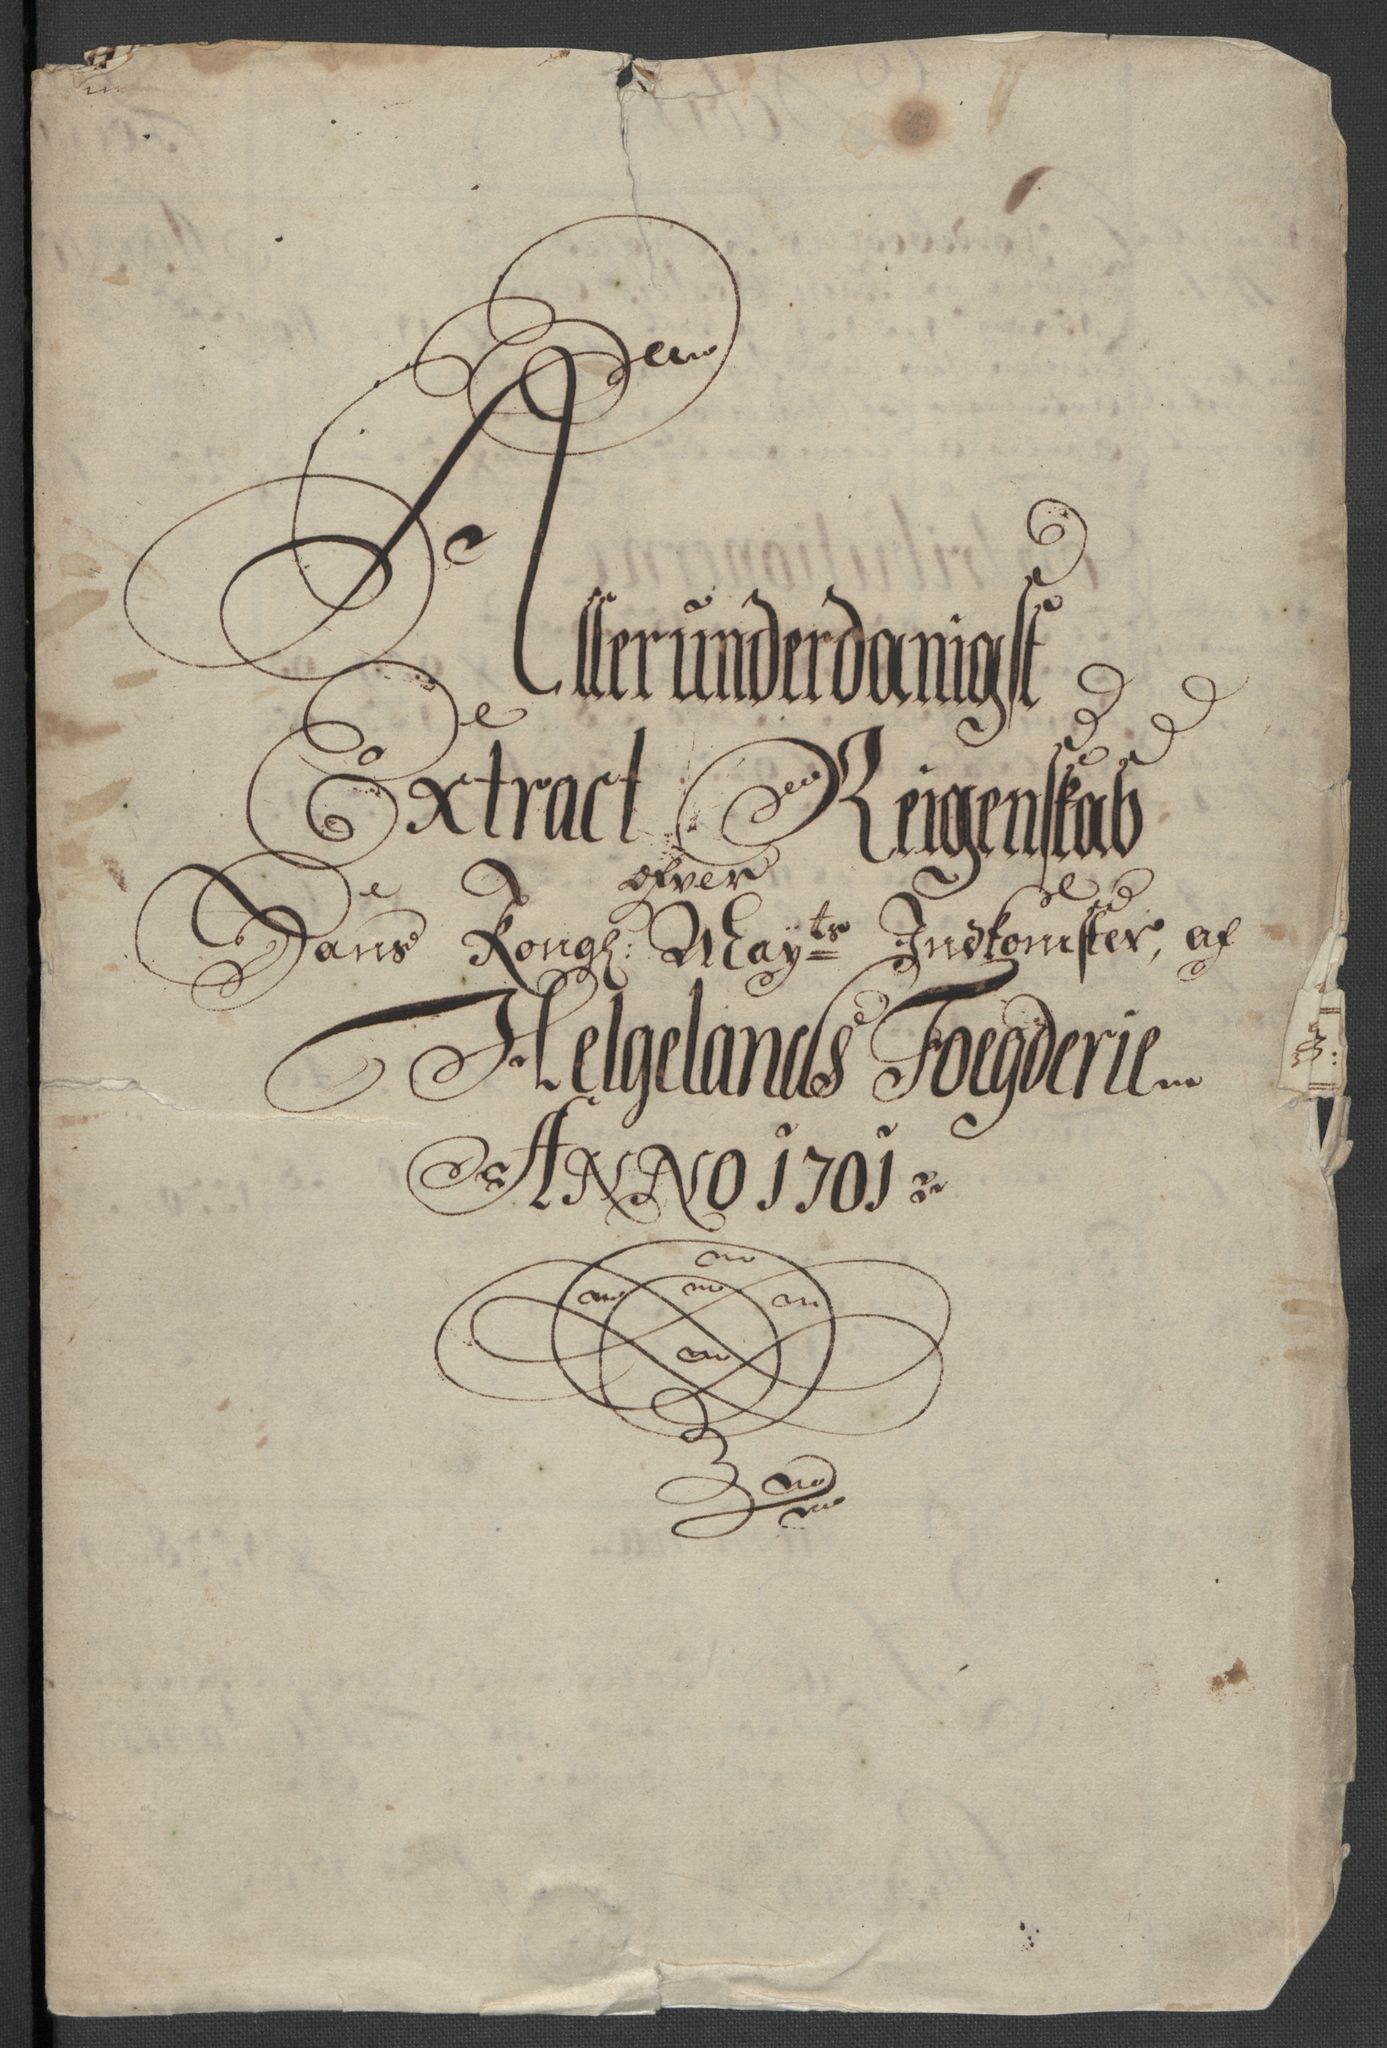 Allerunderdanigst
Extract Reigenskab
ofver
Hans Kongl: Mayts Indkomster, af
Helgelands Foegderie
ANNO 1701